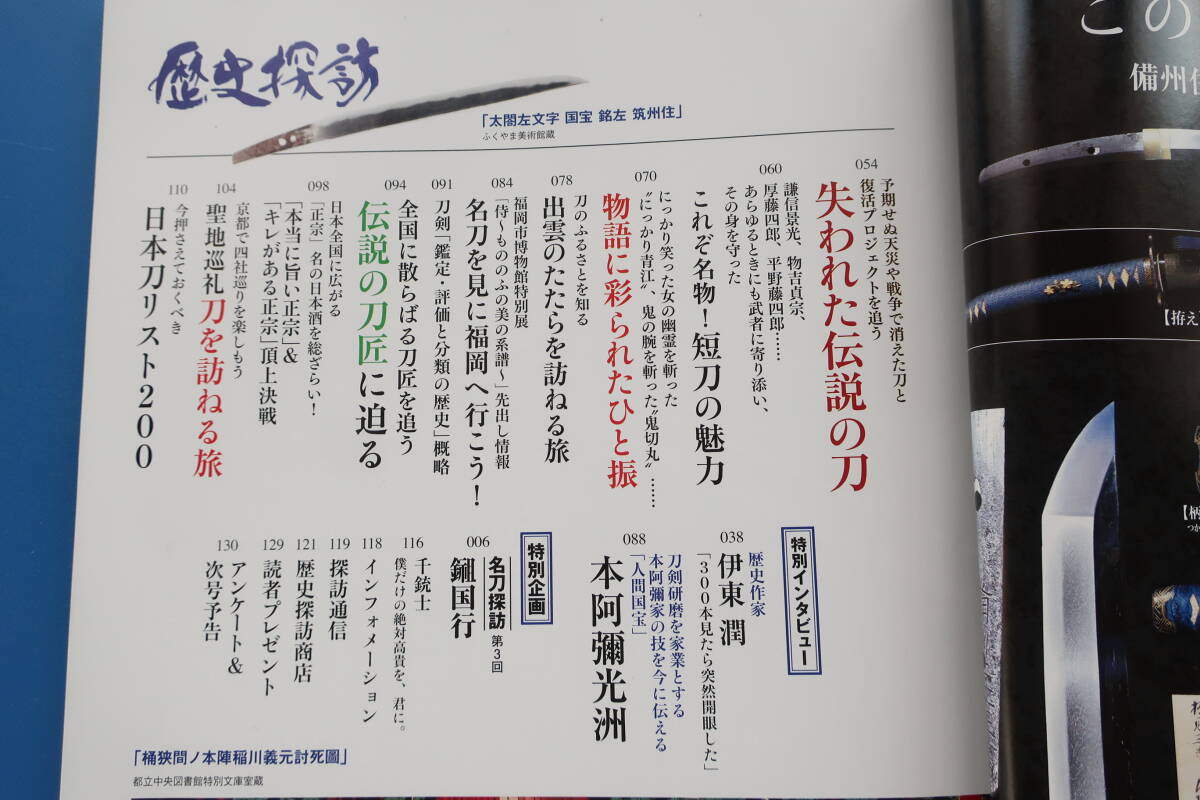 歴史探訪
「太閤左文字 国宝 銘左 筑州住」
ふくやま美術館蔵
054
予期せぬ天災や戦争で消えた刀と
復活プロジェクトを追う
失われた伝説の刀
060
謙信景光、物吉貞宗、
厚藤四郎、平野藤四郎……
あらゆるときにも武者に寄り添い、
その身を守った
これぞ名物！短刀の魅力
070
にっかり笑った女の幽霊を斬った
〝にっかり青江〟、鬼の腕を斬った〝鬼切丸〟……
物語に彩られたひと振
078
刀のふるさとを知る
出雲のたたらを訪ねる旅
084
福岡市博物館特別展
「侍～もののふの美の系譜～」先出し情報
名刀を見に福岡へ行こう！
091
刀剣「鑑定・評価と分類の歴史」概略
094
全国に散らばる刀匠を追う
伝説の刀匠に迫る
098
日本全国に広がる
「正宗」名の日本酒を総ざらい！
「本当に旨い正宗」&
「キレがある正宗」頂上決戦
104
京都で四社巡りを楽しもう
聖地巡礼 刀を訪ねる旅
110
今押さえておくべき
日本刀リスト200
特別インタビュー
038
歴史作家
伊東 潤
「300本見たら突然開眼した」
088
刀剣研磨を家業とする
本阿彌家の技を今に伝える
「人間国宝」
本阿彌光洲
特別企画
006
名刀探訪 第3回
国行
116
千銃士
僕だけの絶対高貴を、君に。
118
インフォメーション
119
探訪通信
121
歴史探訪商店
129
読者プレゼント
130
アンケート&
次号予告
「桶狭間ノ本陣稲川義元討死圖」
都立中央図書館特別文庫室蔵
この
備州住
【拵え】
【柄